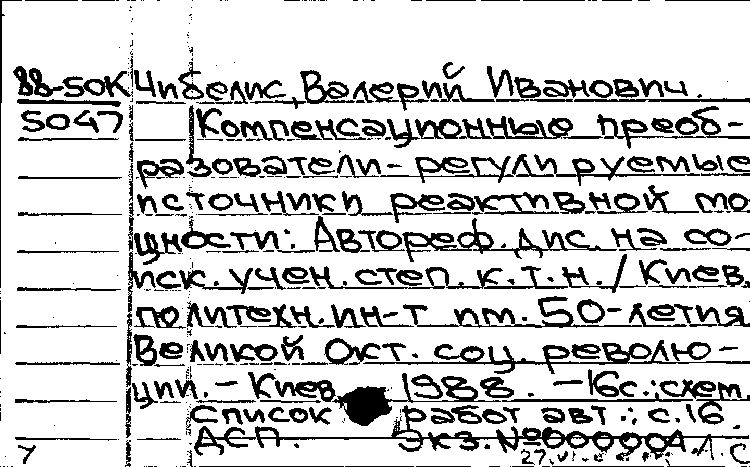 88-50К Чибелис, Валерий Иванович.
5047 Компенсационные преоб-
разователи-регулируемые
источники реактивной мо
щности: Автореф. дис. на со-
иск. учен. степ. к.т.н. / Киев.
политехн. ин-т им. 50-летия
Великой Окт. соц. револю-
ции. - Киев, 1988. - 16с.: схем.
Список работ авт.: с.16.
ДСП. Экз. №000001